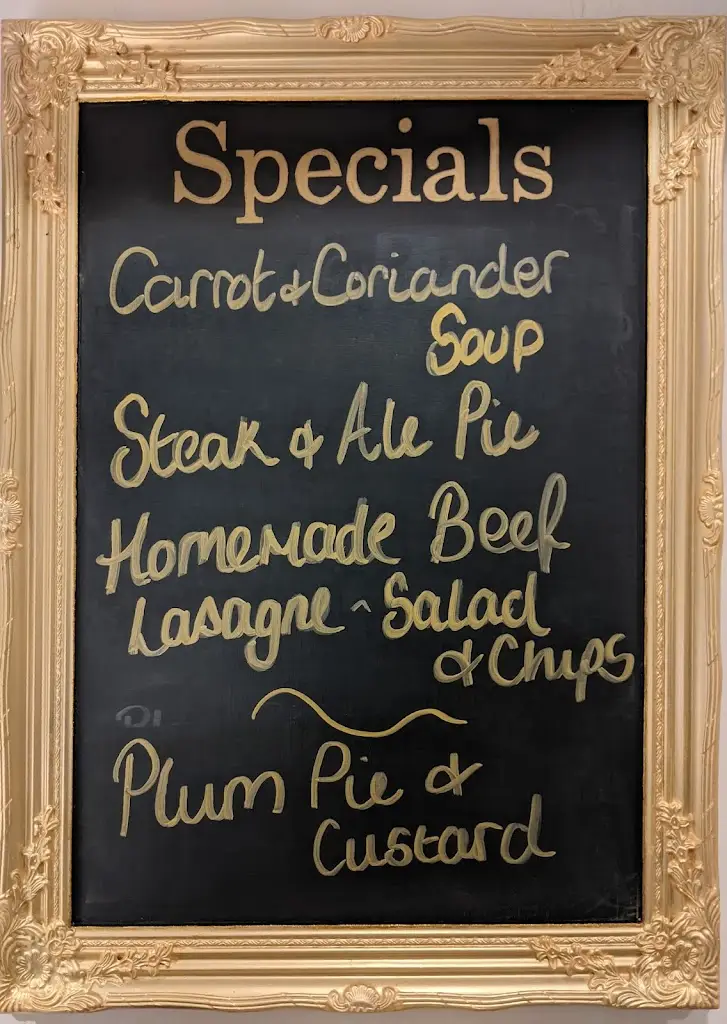 Specials
Carrot & Coriander
Soup
Steak & Ale Pie
Homemade Beef
Lasagne ^ Salad
& Chips
Plum Pie &
Custard